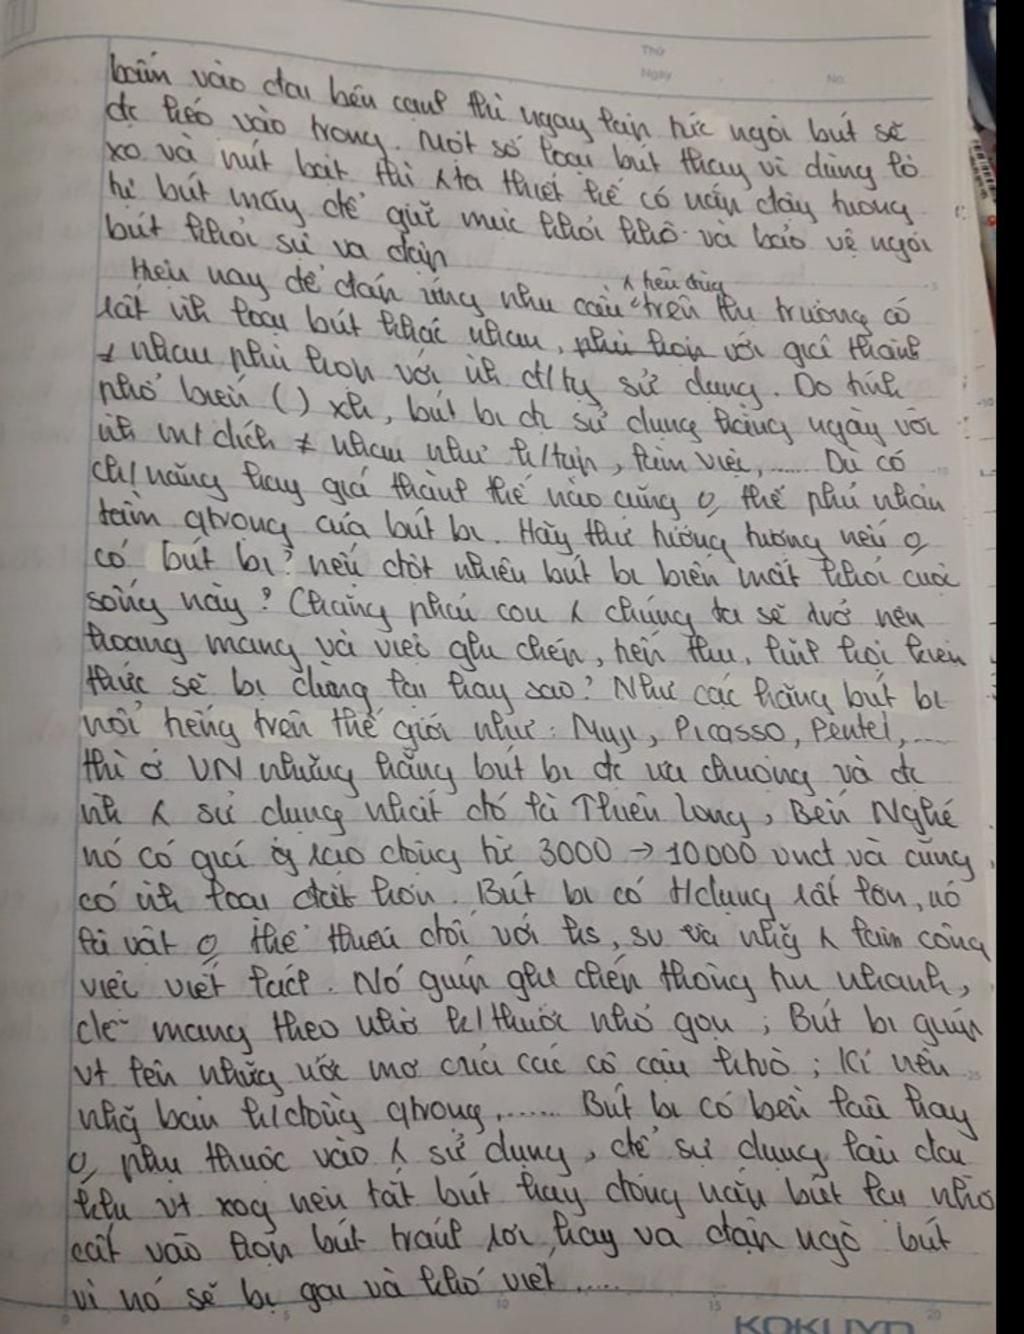 Thứ
Ngày No.
bấm vào đai bên cạnh thì ngay lập tức ngòi bút sẽ
đc kéo vào trong. Một số loại bút thay vì dùng lò
xo và nút bật thì ʎ ta thiết kế có nắp đậy tương
tự bút máy để giữ mực khỏi khô và bảo vệ ngòi
bút khỏi sự va đập
Hiện nay để đáp ứng nhu cầu ʎ tiêu dùng trên thị trường có
rất nh loại bút khác nhau, phù hợp với giá thành
≠ nhau phù hợp với nh đ/tg sử dụng. Do tính
phổ biến () xh, bút bi đc sử dụng hằng ngày với
nh mđ đích ≠ nhau như h/tập, làm việc, ..... Dù có
ch/năng hay giá thành thế nào cũng o thể phủ nhận
tầm qtrọng của bút bi. Hãy thử tưởng tượng nếu o
có bút bi? nếu đột nhiên bút bi biến mất khỏi cuộc
sống này? Chẳng phải con ʎ chúng ta sẽ trở nên
hoang mang và việc ghi chép, tiếp thu, lĩnh hội kiến
thức sẽ bị dừng lại hay sao? Như các hãng bút bi
nổi tiếng trên thế giới như: Muji, Picasso, Pentel, ....
thì ở VN những hãng bút bi đc ưa chuộng và đc
nh ʎ sử dụng nhất đó là Thiên Long, Bến Nghé
nó có giá dao động từ 3000 → 10.000 vnđ và cũng
có nh loại đắt hơn. Bút bi có t/dụng rất lớn, nó
là vật o thể thiếu đối với hs, sv và nhg ʎ làm công
việc viết lách. Nó giúp ghi chép thông tin nhanh,
dễ mang theo nhờ k/thước nhỏ gọn; Bút bi giúp
vt lên những ước mơ của các cô cậu học trò; Kí nên
nhg bản h/đồng qtrọng, ...... Bút bi có bền lâu hay
o phụ thuộc vào ʎ sử dụng, để sử dụng lâu dài
khi vt xog nên tắt bút hay đóng nắp bút lại nhớ
cất vào hộp bút tránh rơi, hay va đập ngòi bút
vì nó sẽ bị gai và khó viết .....
KOKUYO